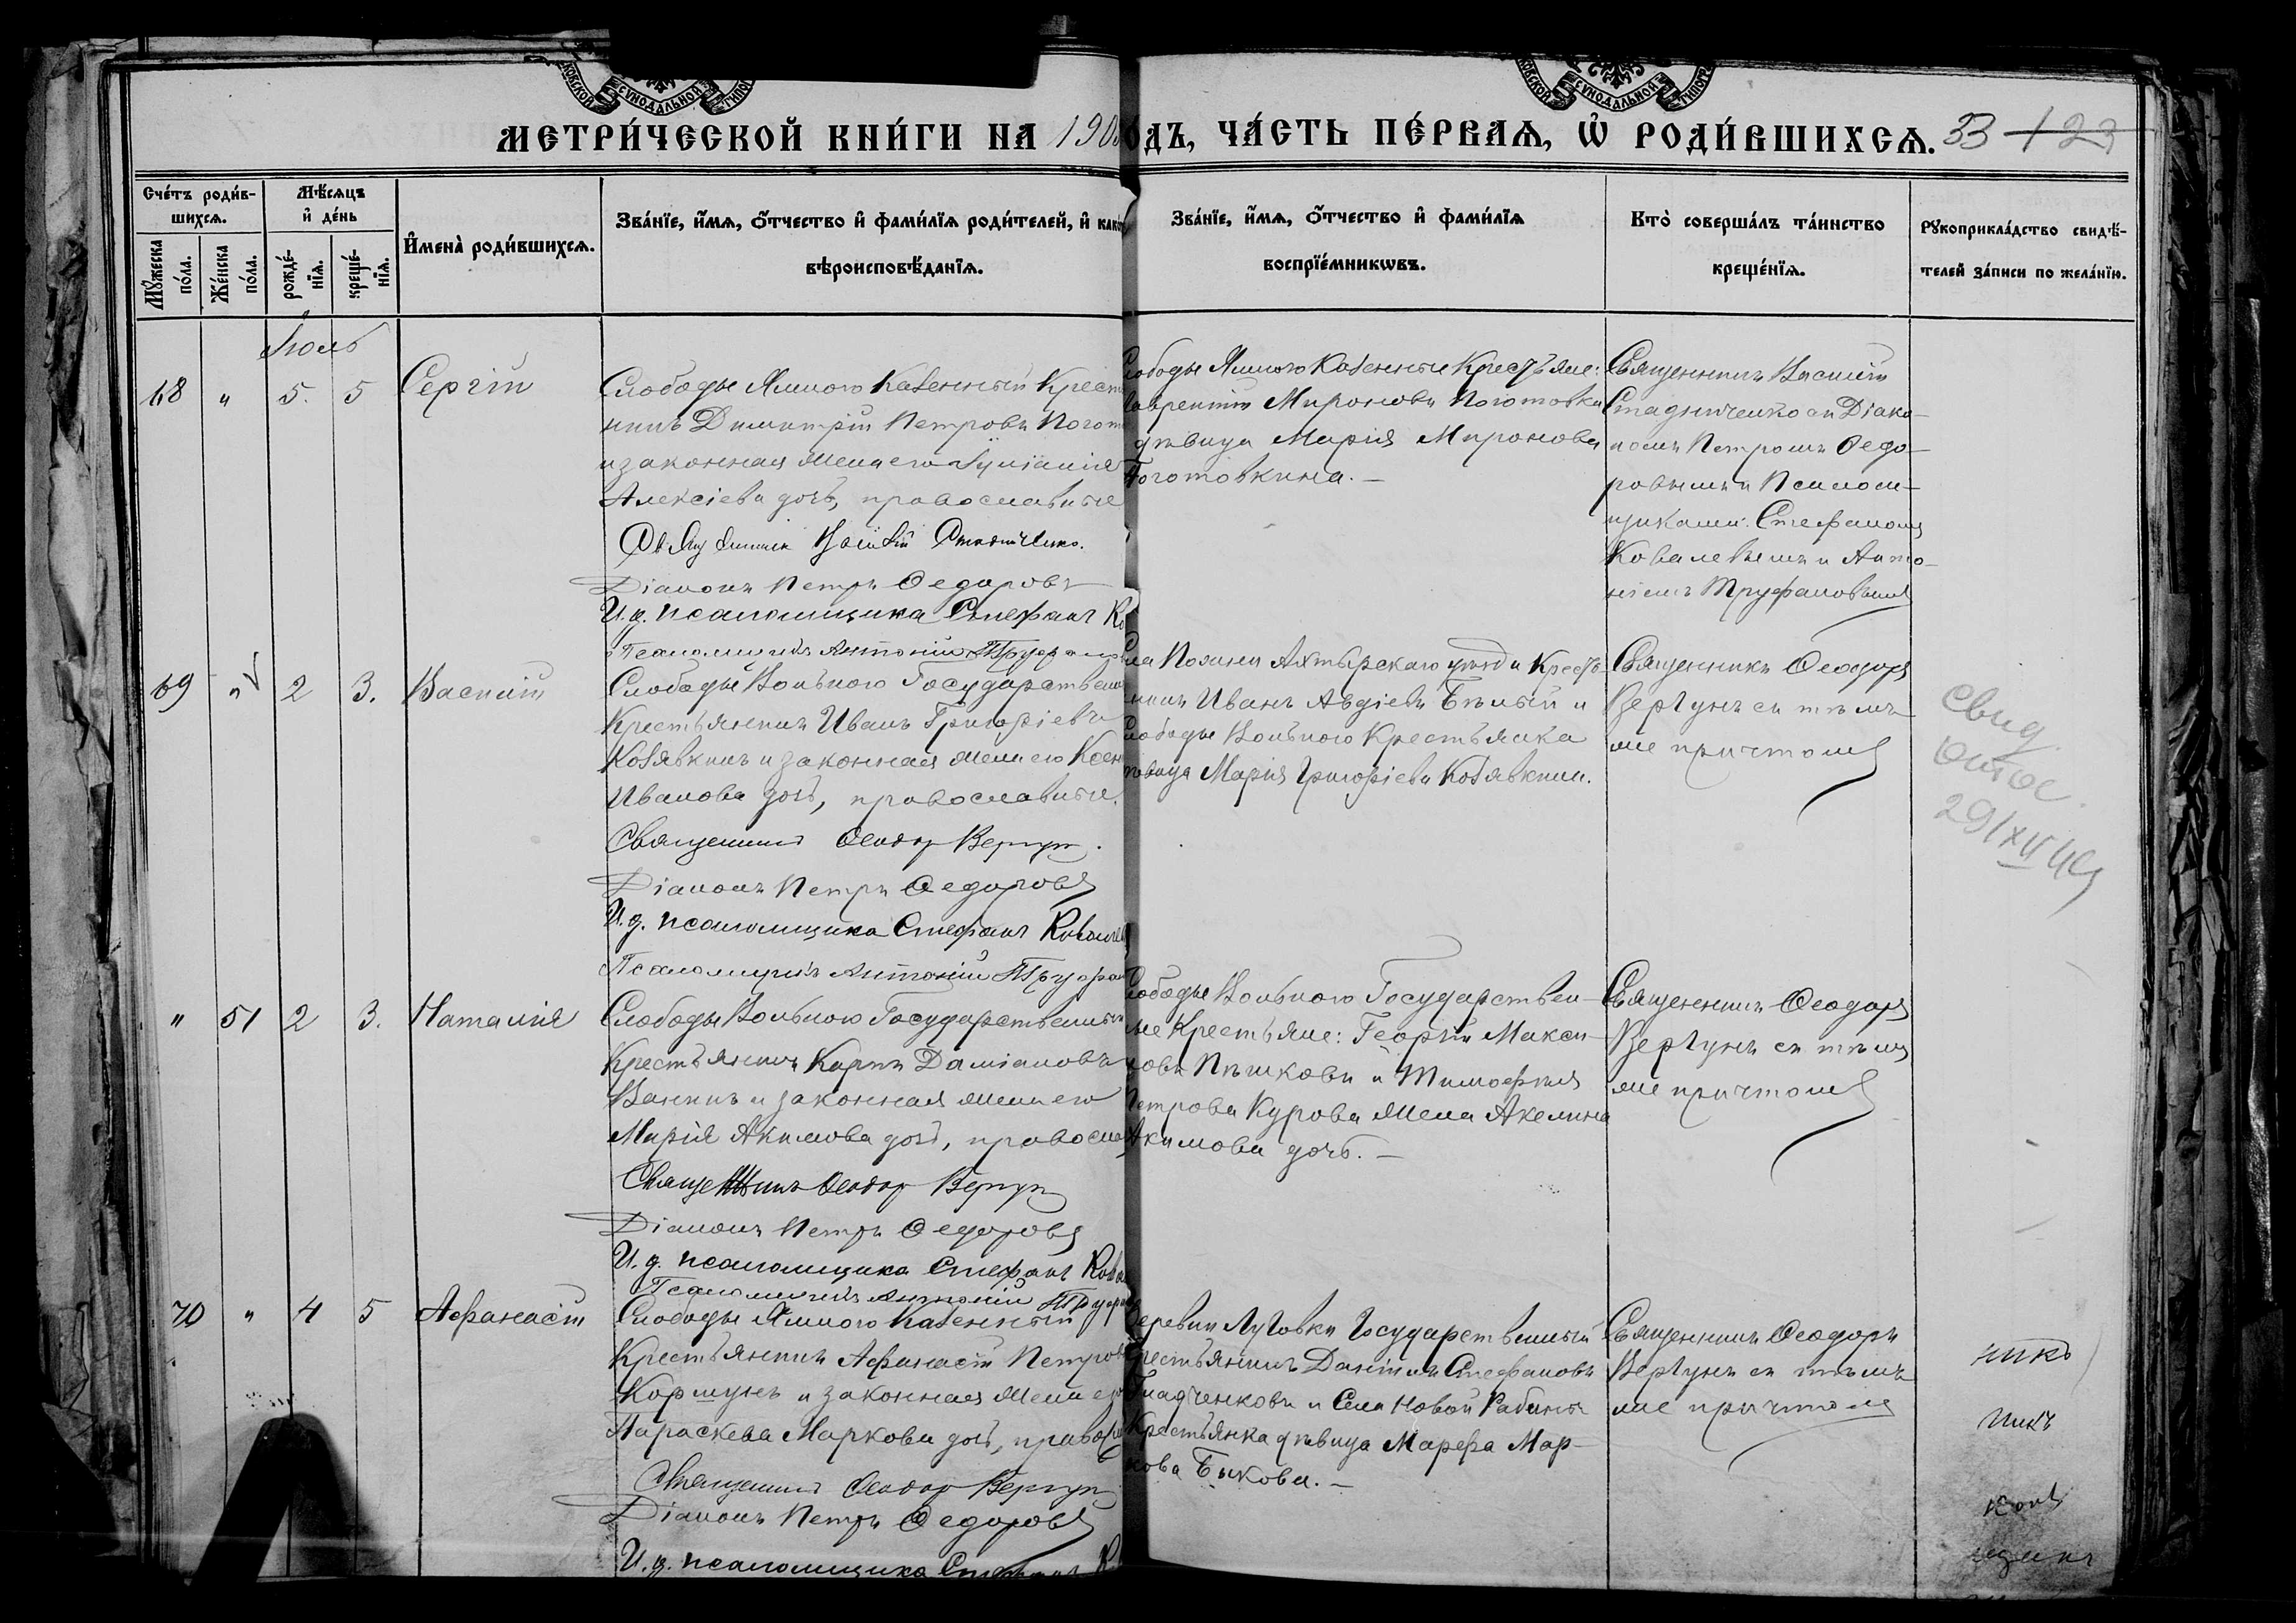 МЕТРИ́ЧЕСКОЙ КНИ́ГИ НА 190
ОДЪ, ЧА́СТЬ ПЕ́РВАѦ, Ѽ РОДИ́ВШИХСѦ. 33 123
Сче́тъ роди́в-
шихсѧ.
Мꙋ́жеска по́ла.
Же́нска по́ла.
Мѣ́сѧцъ
и҆ де́нь
рожде́-
нїѧ.
креще́-
нїѧ.
И҆мена̀ роди́вшихсѧ.
Зва́нїе, и҆́мѧ, ѻ҆́тчество и҆ фами́лїѧ роди́телей, и҆ како
вѣроисповѣ́данїѧ.
Зва́нїе, и҆́мѧ, ѻ҆́тчество и҆ фами́лїѧ
воспрїе́мникѡвъ.
Кто̀ соверша́лъ та́инство
креще́нїѧ.
Рꙋкоприкла́дство свидѣ́-
телей за́писи по жела́нїю.
Іюль
68 " 5. 5 Сергій
Слободы Ямного Казенный Крест
нинъ Димитрій Петровъ Погот
и законная жена его
Алексіева дочь, православные
Священникъ Василій Стадниченко.
Діаконъ Петръ Ѳедоровъ
И. д. псаломщика Стефанъ Ко
Псаломщикъ Антоній Труфано
лободы Ямного Казенные Крестьяне:
Лаврентій Мироновъ Поготовка
дѣвица Марія Миронова
Поготовкина. —
Священникъ Василій
Стадниченко съ Діако-
номъ Петромъ Ѳедо-
ровымъ и Псаломщ-
иками: Стефаномъ
Ковалевымъ и Анто-
ніемъ Труфановымъ
69 " 2 3. Василій
Слободы Вольного Государствен
Крестьянинъ Иванъ Григоріевъ
Козявкинъ и законная жена его Ксен
Иванова дочь, православные.
Священникъ Ѳеодоръ Вергунъ.
Діаконъ Петръ Ѳедоровъ
И. д. псаломщика Стефанъ Ковалев
Псаломщикъ Антоній Труфан
Ахтырскаго уѣзда Кресть-
нинъ Иванъ Авдіевъ Бѣлый и
лободы Вольного Крестьянка
дѣвица Марія Григоріева Козявкина.
Священникъ Ѳеодоръ
Вергунъ съ тѣмъ
же причтомъ
свид.
" 51 2 3. Наталія
Слободы Вольного Государственный
Крестьянинъ Карпъ Даміановъ
Ванинъ и законная жена его
Марія Акимова дочь, правосла
Священникъ Ѳеодоръ Вергунъ
Діаконъ Петръ Ѳедоровъ
И. д. псаломщика Стефанъ Кова
Псаломщикъ Антоній Труфан
лободы Вольного Государствен-
ые Крестьяне: Георгій Макси-
мовъ Пѣшковъ и Тимофея
Петрова Курова жена Акелина
Акимова дочь. —
Священникъ Ѳеодоръ
Вергунъ съ тѣмъ
же причтомъ
70 " 4 5 Аѳанасій
Слободы Ямного Казенный
Крестьянинъ Аѳанасій Петров
Коршунъ и законная жена его
Параскева Маркова дочь, правосл
Священникъ Ѳеодоръ Вергунъ
Діаконъ Петръ Ѳедоровъ
И. д. псаломщика Стефанъ К
Деревни Луговки Государственный
Крестьянинъ Даніилъ Стефановъ
Гладченковъ и Села Новой Рябины
Крестьянка дѣвица Марѳа Мар-
кова Быкова. —
Священникъ Ѳеодоръ
Вергунъ съ тѣмъ
же причтомъ